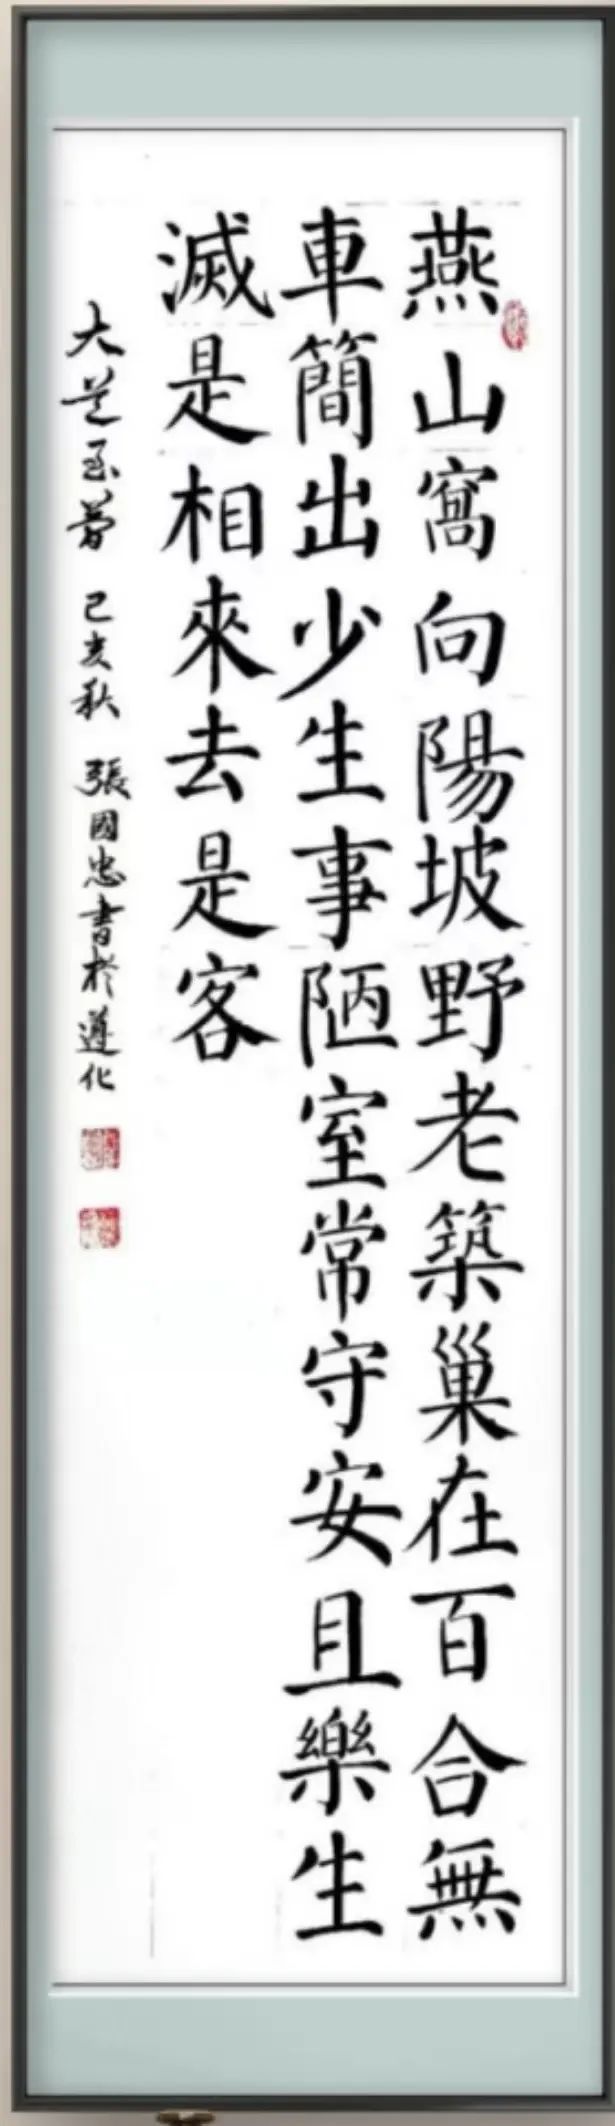 燕山窩向陽坡野老築巢在百合無
車簡出少生事陋室常守安且樂生
滅是相來去是客
大芝至夢 己亥秋 張國忠書於遵化